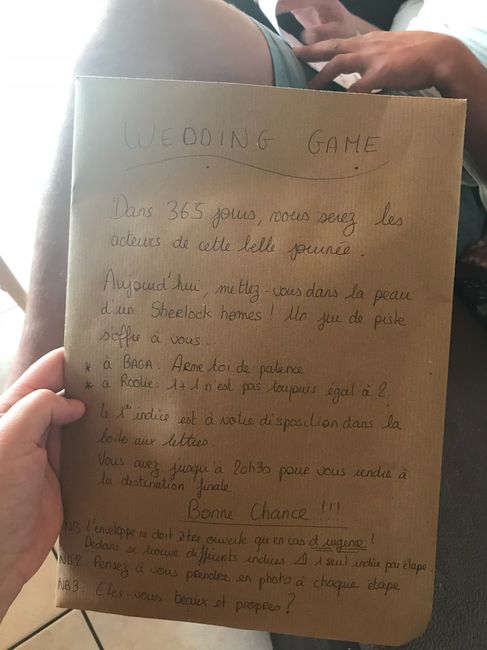 WEDDING GAME
Dans 365 jours, vous serez les
acteurs de cette belle journée.
Aujourd'hui, mettez-vous dans la peau
d'un Sherlock homes ! Un jeu de piste
s'offre à vous.
* à BAGA : Arme toi de patience
* à Rootie : 1+1 n'est pas toujours égal à 2.
Le 1er indice est à votre disposition dans la
boite aux lettres.
Vous avez jusqu'à 20h30 pour vous rendre à
la destination finale
Bonne Chance !!!
NB : L'enveloppe ne doit être ouverte qu'en cas d'urgence !
Dedans se trouve différents indices ⚠ 1 seul indice par étape.
NB2 : Pensez à vous prendre en photo à chaque étape
NB3 : Etes-vous beaux et propres ?